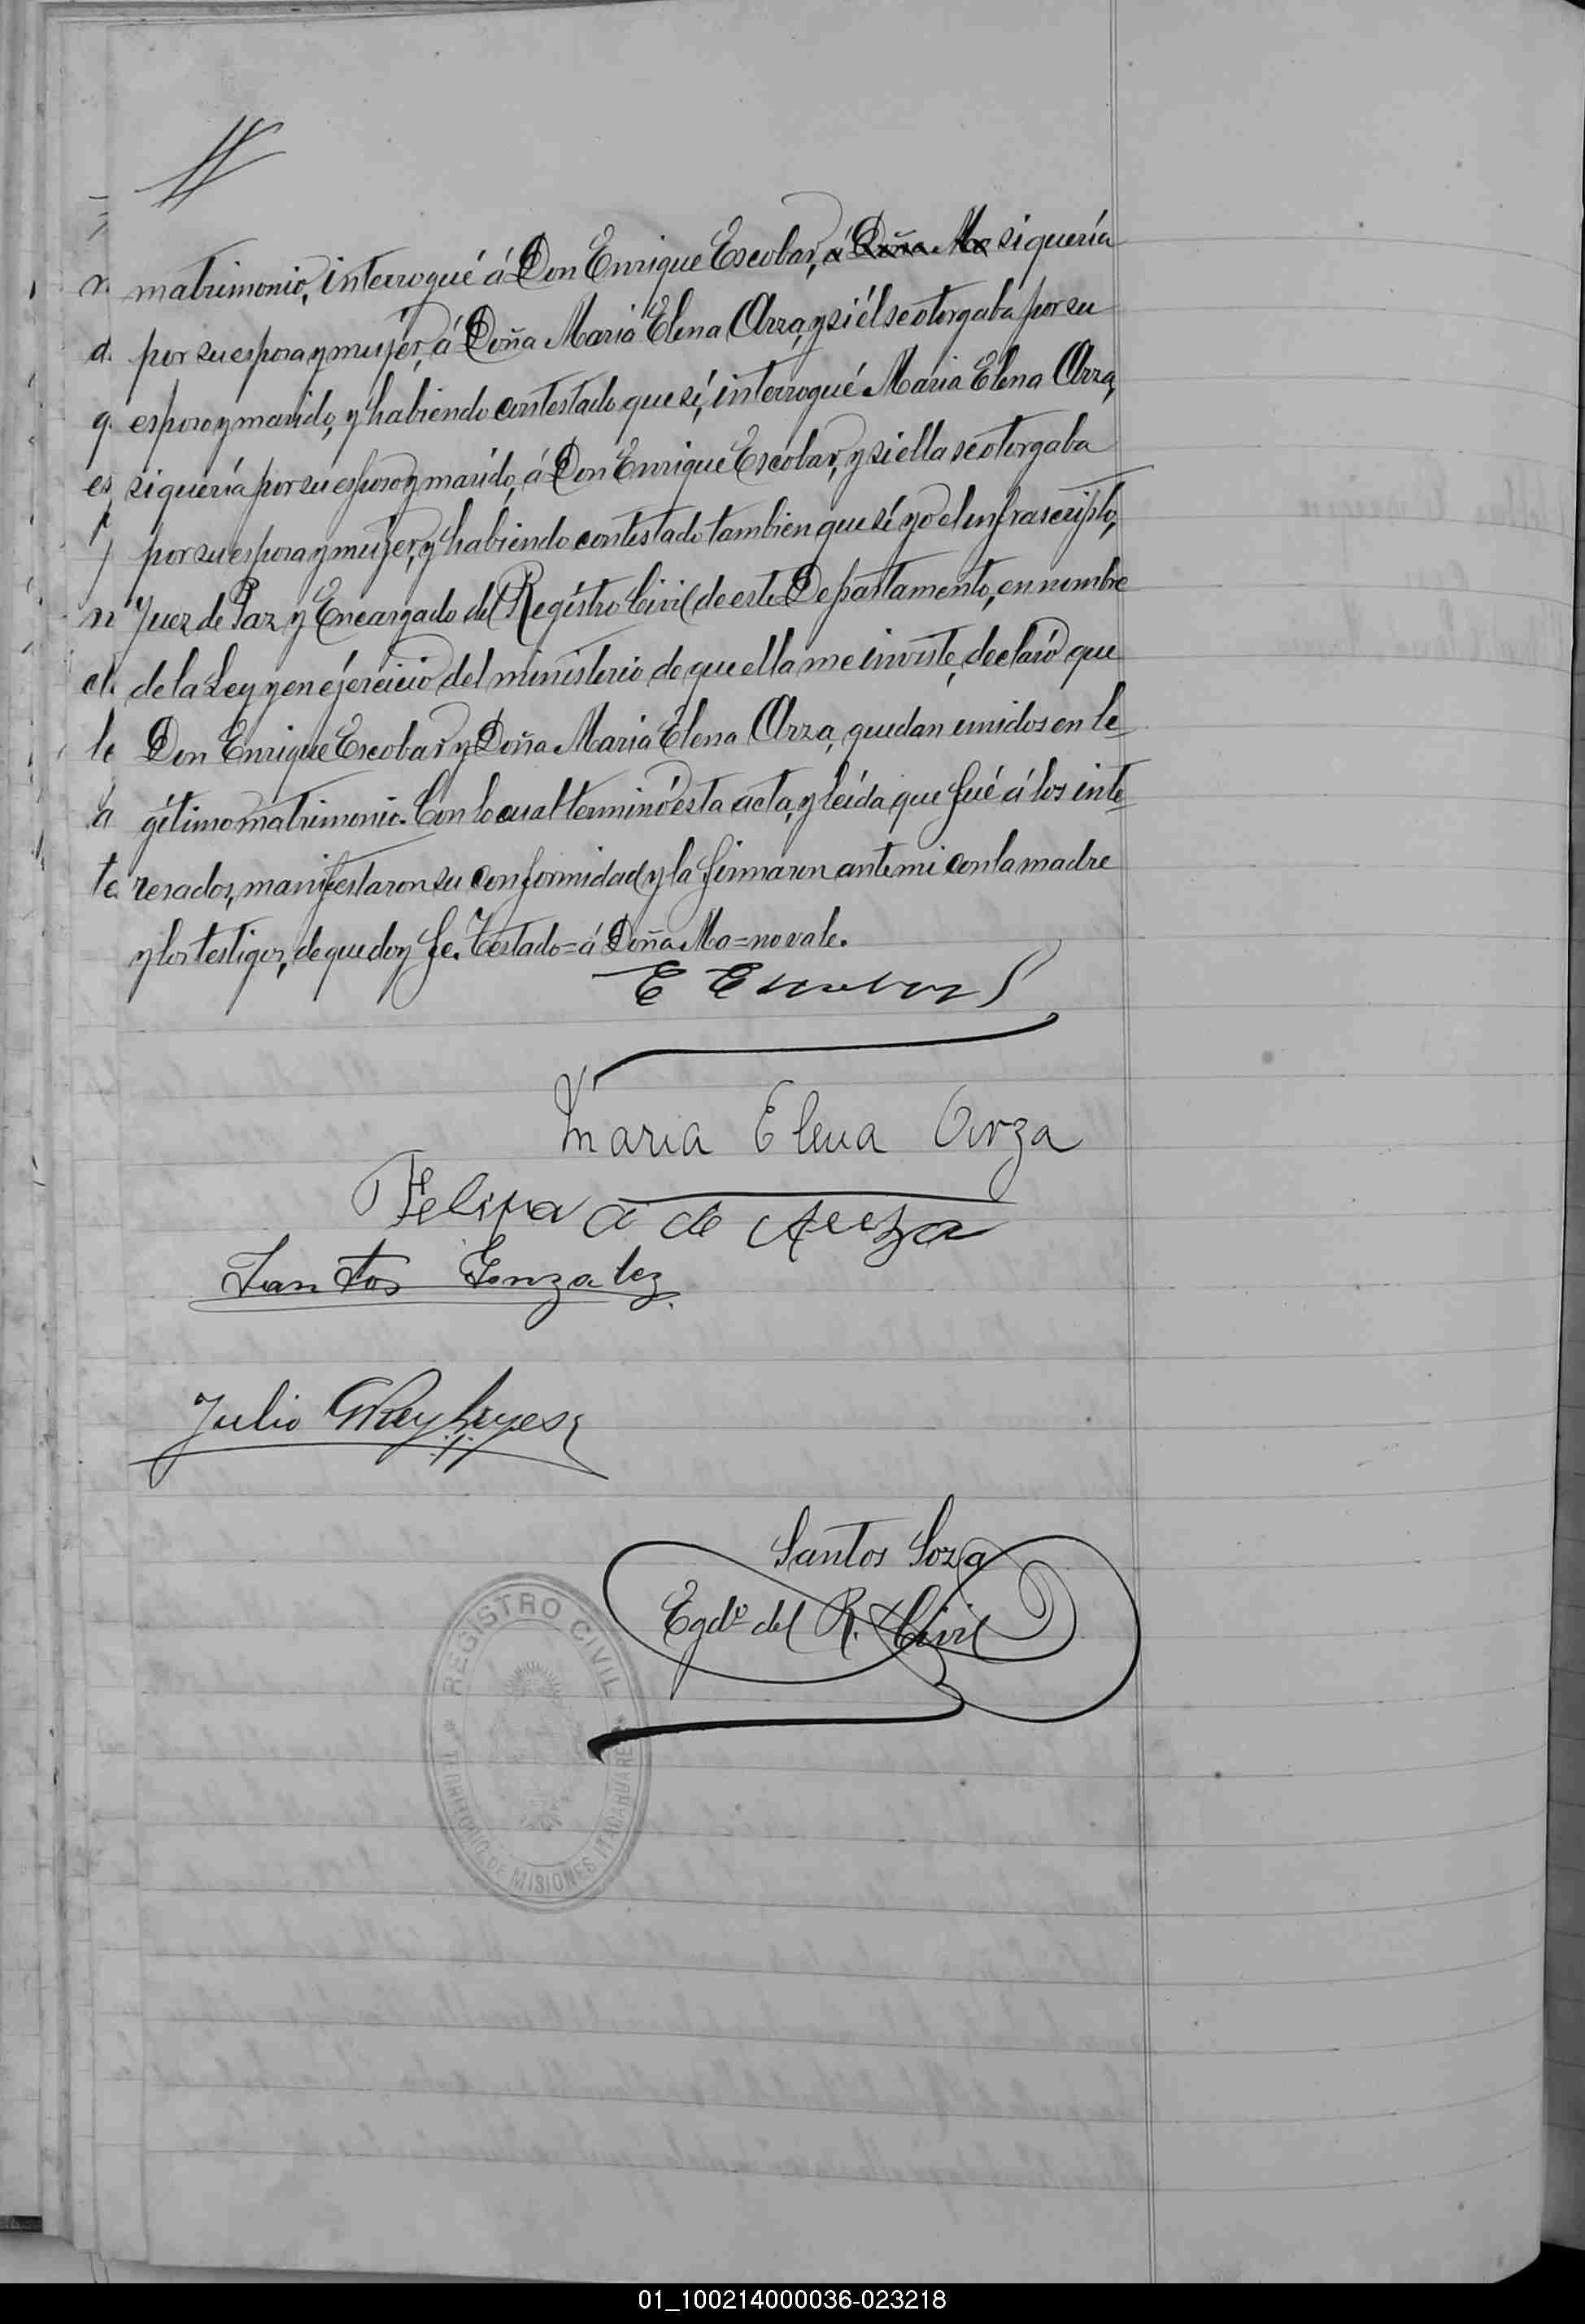 matrimonio, interrogué á Don Enrique Escobar, á Doña Ma si quería
por su esposa y mujer, á Doña Maria Elena Arza, y si él se otorgaba por su
esposo y marido, y habiendo contestado que sí, interrogué Maria Elena Arza,
si quería por su esposo y marido, á Don Enrique Escobar, y si ella se otorgaba
por su esposa y mujer, y habiendo contestado tambien que sí yo el infrascripto,
Juez de Paz y Encargado del Registro Civil de este Departamento, en nombre
de la Ley y en ejercicio del ministerio de que ella me inviste, declaró que
Don Enrique Escobar y Doña Maria Elena Arza, quedan unidos en le
gítimo matrimonio. Con lo cual terminó esta acta, y leída que fué á los inte
resados, manifestaron su conformidad y la firmaron ante mi con la madre
y los testigos, de que doy fe. Testado=á Doña Ma=no vale.
E Escobar
Maria Elena Arza
Felipa A de Arza
Santos Gonzalez
Julio
Santos Soza
Egdo del R. Civil
REGISTRO CIVIL
TERRITORIO DE MISIONES ITACARUARE
01_100214000036-023218